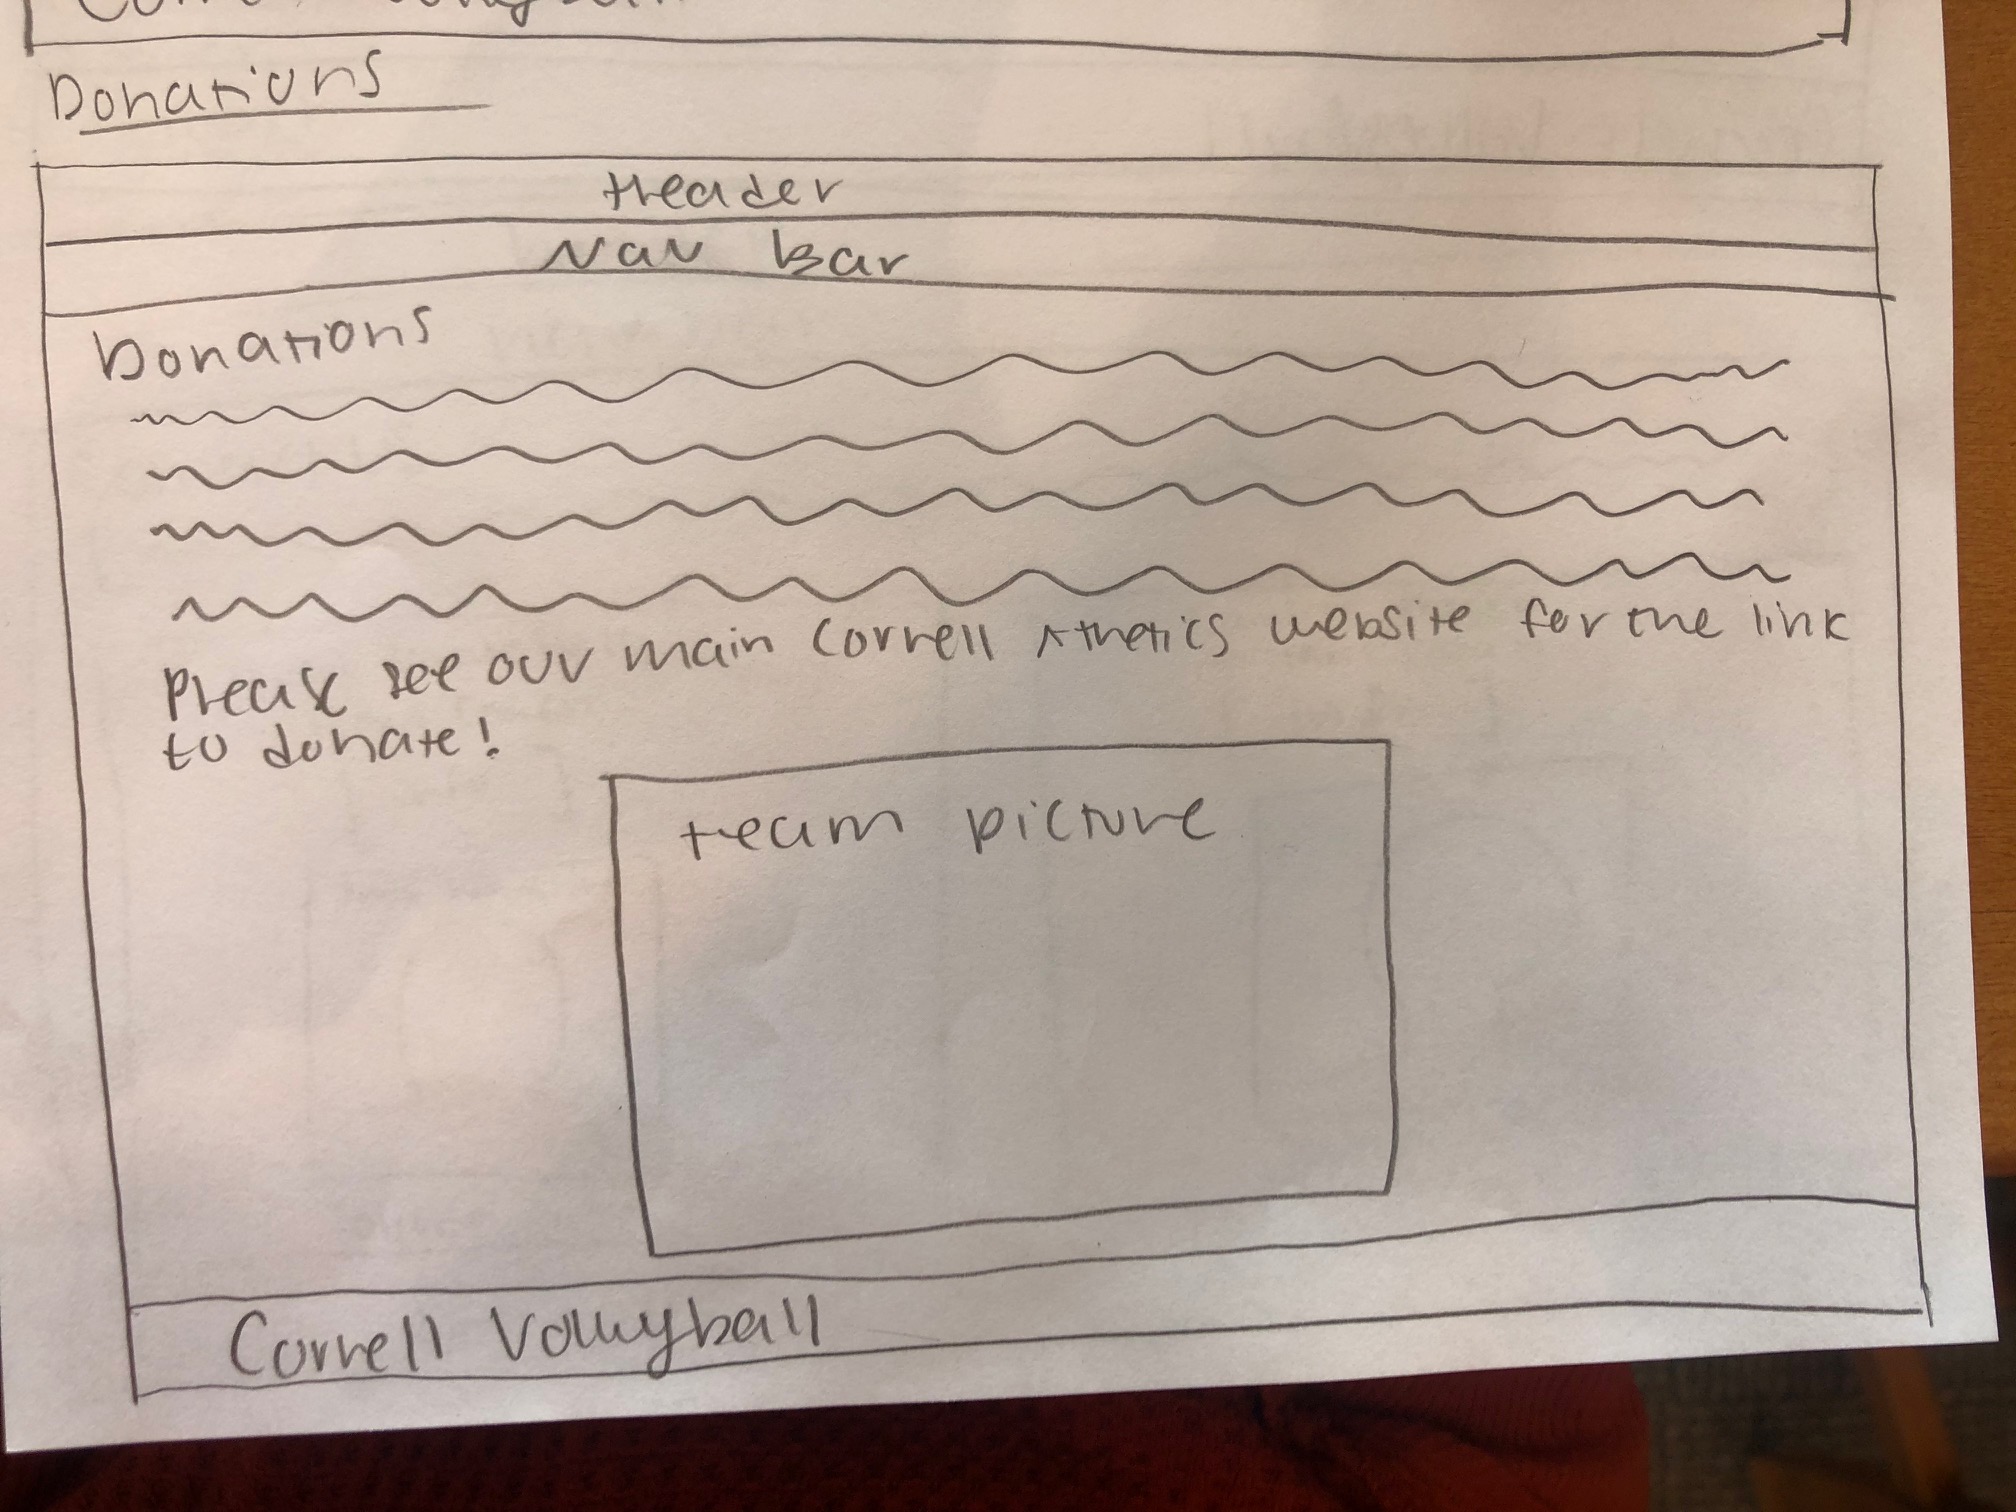 Donations
Header
Nav Bar
Donations
Please see our main Cornell Athetics website for the link
to donate!
team picture
Cornell Volleyball